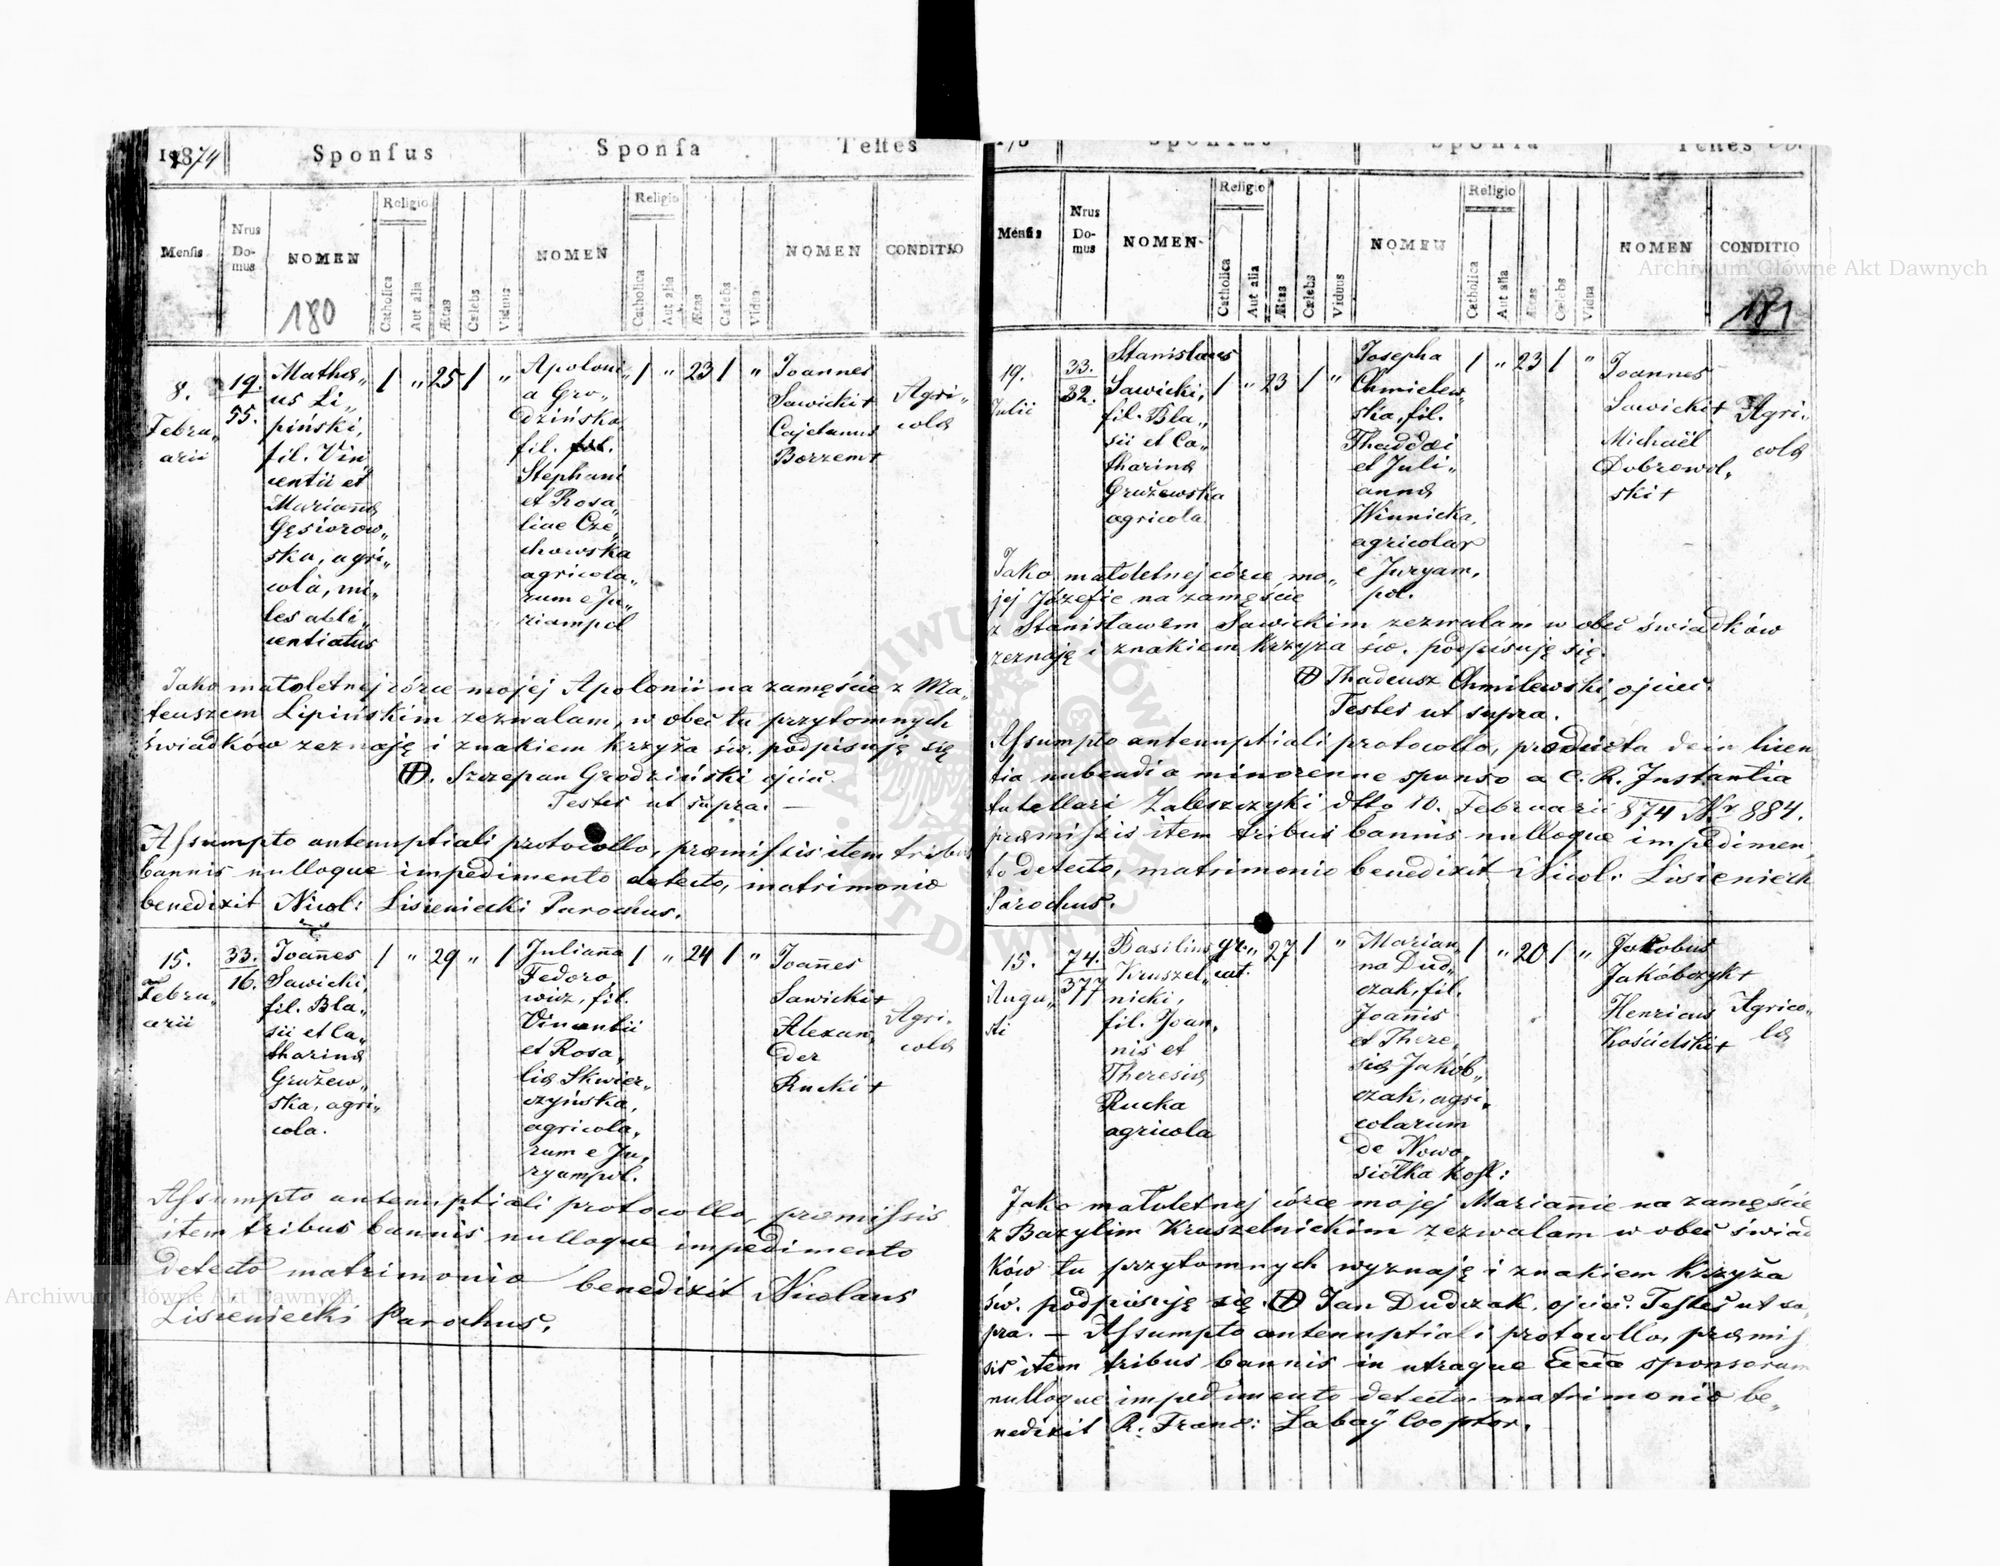 1874 Sponſus Sponſa Teſtes
Menſis Nrus Do-mus NOMEN Religio Catholica Aut alia Ætas Cælebs Viduus NOMEN Religio Catholica Aut alia Ætas Cælebs Vidua NOMEN CONDITIO
180
8.
Febru„
arii
19.
55.
Mathæ„
us Li„
piński,
fil. Vin
centii et
Mariannæ
Gęsiorow„
ska, agri„
cola, mi„
les abli„
centiatus
/ „ 25 / „
Apoloni„
a Gro„
dzińska
fil.
Stephani
et Rosa„
liae Cze„
chowska
agricola„
rum e Ju„
riampol
/ „ 23 / „
Joannes
Sawicki +
Cajetanus
Borzem +
Agri„
colæ
Jako małoletnej córce mojej Apolonii na zamęście z Ma„
teuszem Lipińskim zezwalam, w obec tu przytomnych
świadków zeznaję i znakiem krzyża św. podpisuję się
(+). Szczepan Grodziński ojciec
Testes ut supra. —
Aſsumpto antenuptiali protocollo, præmiſsis item tribus
bannis nulloque impedimento detecto, matrimonio
benedixit Nicol: Lisieniecki Parochus.
15.
Febru„
arii
33.
16.
Joan̄es
Sawicki,
fil. Bla„
sii et Ca„
tharinæ
Grużew„
ska, agri„
cola.
/ „ 29 „ /
Julian̄a
Fedoro„
wicz, fil.
Vincentii
et Rosa„
liæ Skwier„
czyńska,
agricola„
rum e Ju„
ryampol.
/ „ 24 / „
Joan̄es
Sawicki +
Alexan„
der
Rucki +
Agri„
colæ
Aſsumpto antenuptiali protocollo, præmiſsis
item tribus bannis nulloque impedimento
detecto matrimonio benedixit Nicolaus
Lisieniecki Parochus.
Sponſus Sponſa Teſtes
Menſis Nrus Do-mus NOMEN Religio Catholica Aut alia Ætas Cælebs Viduus NOMEN Religio Catholica Aut alia Ætas Cælebs Vidua NOMEN CONDITIO
181
19.
Julii
33.
32.
Stanislaus
Sawicki,
fil. Bla„
sii et Ca„
tharinæ
Grużewska
agricola
/ „ 23 / „
Josepha
Chmielew„
ska, fil.
Thaddæi
et Juli„
annæ
Winnicka,
agricolar
e Juryam„
pol.
/ „ 23 / „
Joannes
Sawicki +
Michaël
Dobrowol„
ski +
Agri„
colæ
Jako małoletnej córce mo„
jej Józefie na zamęście
z Stanisławem Sawickim zezwalam w obec świadków
zeznaję i znakiem krzyża św. podpisuję się.
(+) Thadeusz Chmilewski, ojciec.
Testes ut supra.
Aſsumpto antenuptiali protocollo, producta dein licen
tia nubendi a minorenne sponso a C. R. Instantia
tutellari Zaleszczyki dtto 10. Februarii 874 Nr 884.
præmiſsis item tribus bannis nulloque impedimen„
to detecto, matrimonio benedixit Nicol: Lisieniecki
Parochus.
15.
Augu„
sti
74.
377
Basilius
Kruszel„
nicki,
fil. Joan„
nis et
Theresiæ
Rucka
agricola
gr„
cat.
27 / „
Marian„
na Dud„
czak, fil.
Joan̄is
et There„
siæ Jakób„
czak, agri„
colarum
de Nowo„
siółka Koſt:
/ „ 20 / „
Jakobus
Jakóbczyk +
Henricus
Kościelski +
Agrico„
læ
Jako małoletnej córce mojej Marian̄ie na zamęście
z Bazylim Kruszelnickim zezwalam w obec świad
ków tu przytomnych wyznaję i znakiem krzyża
św. podpisuję się. (+) Jan Dudczak, ojciec. Testes ut su„
pra. — Aſsumpto antenuptiali protocollo, præmiſ
sis item tribus bannis in utraque Eccia sponsorum
nulloque impedimento detecto, matrimonio be„
nedixit R. Franc: Labaÿ Cooptor.
Archiwum Główne Akt Dawnych
Archiwum Główne Akt Dawnych